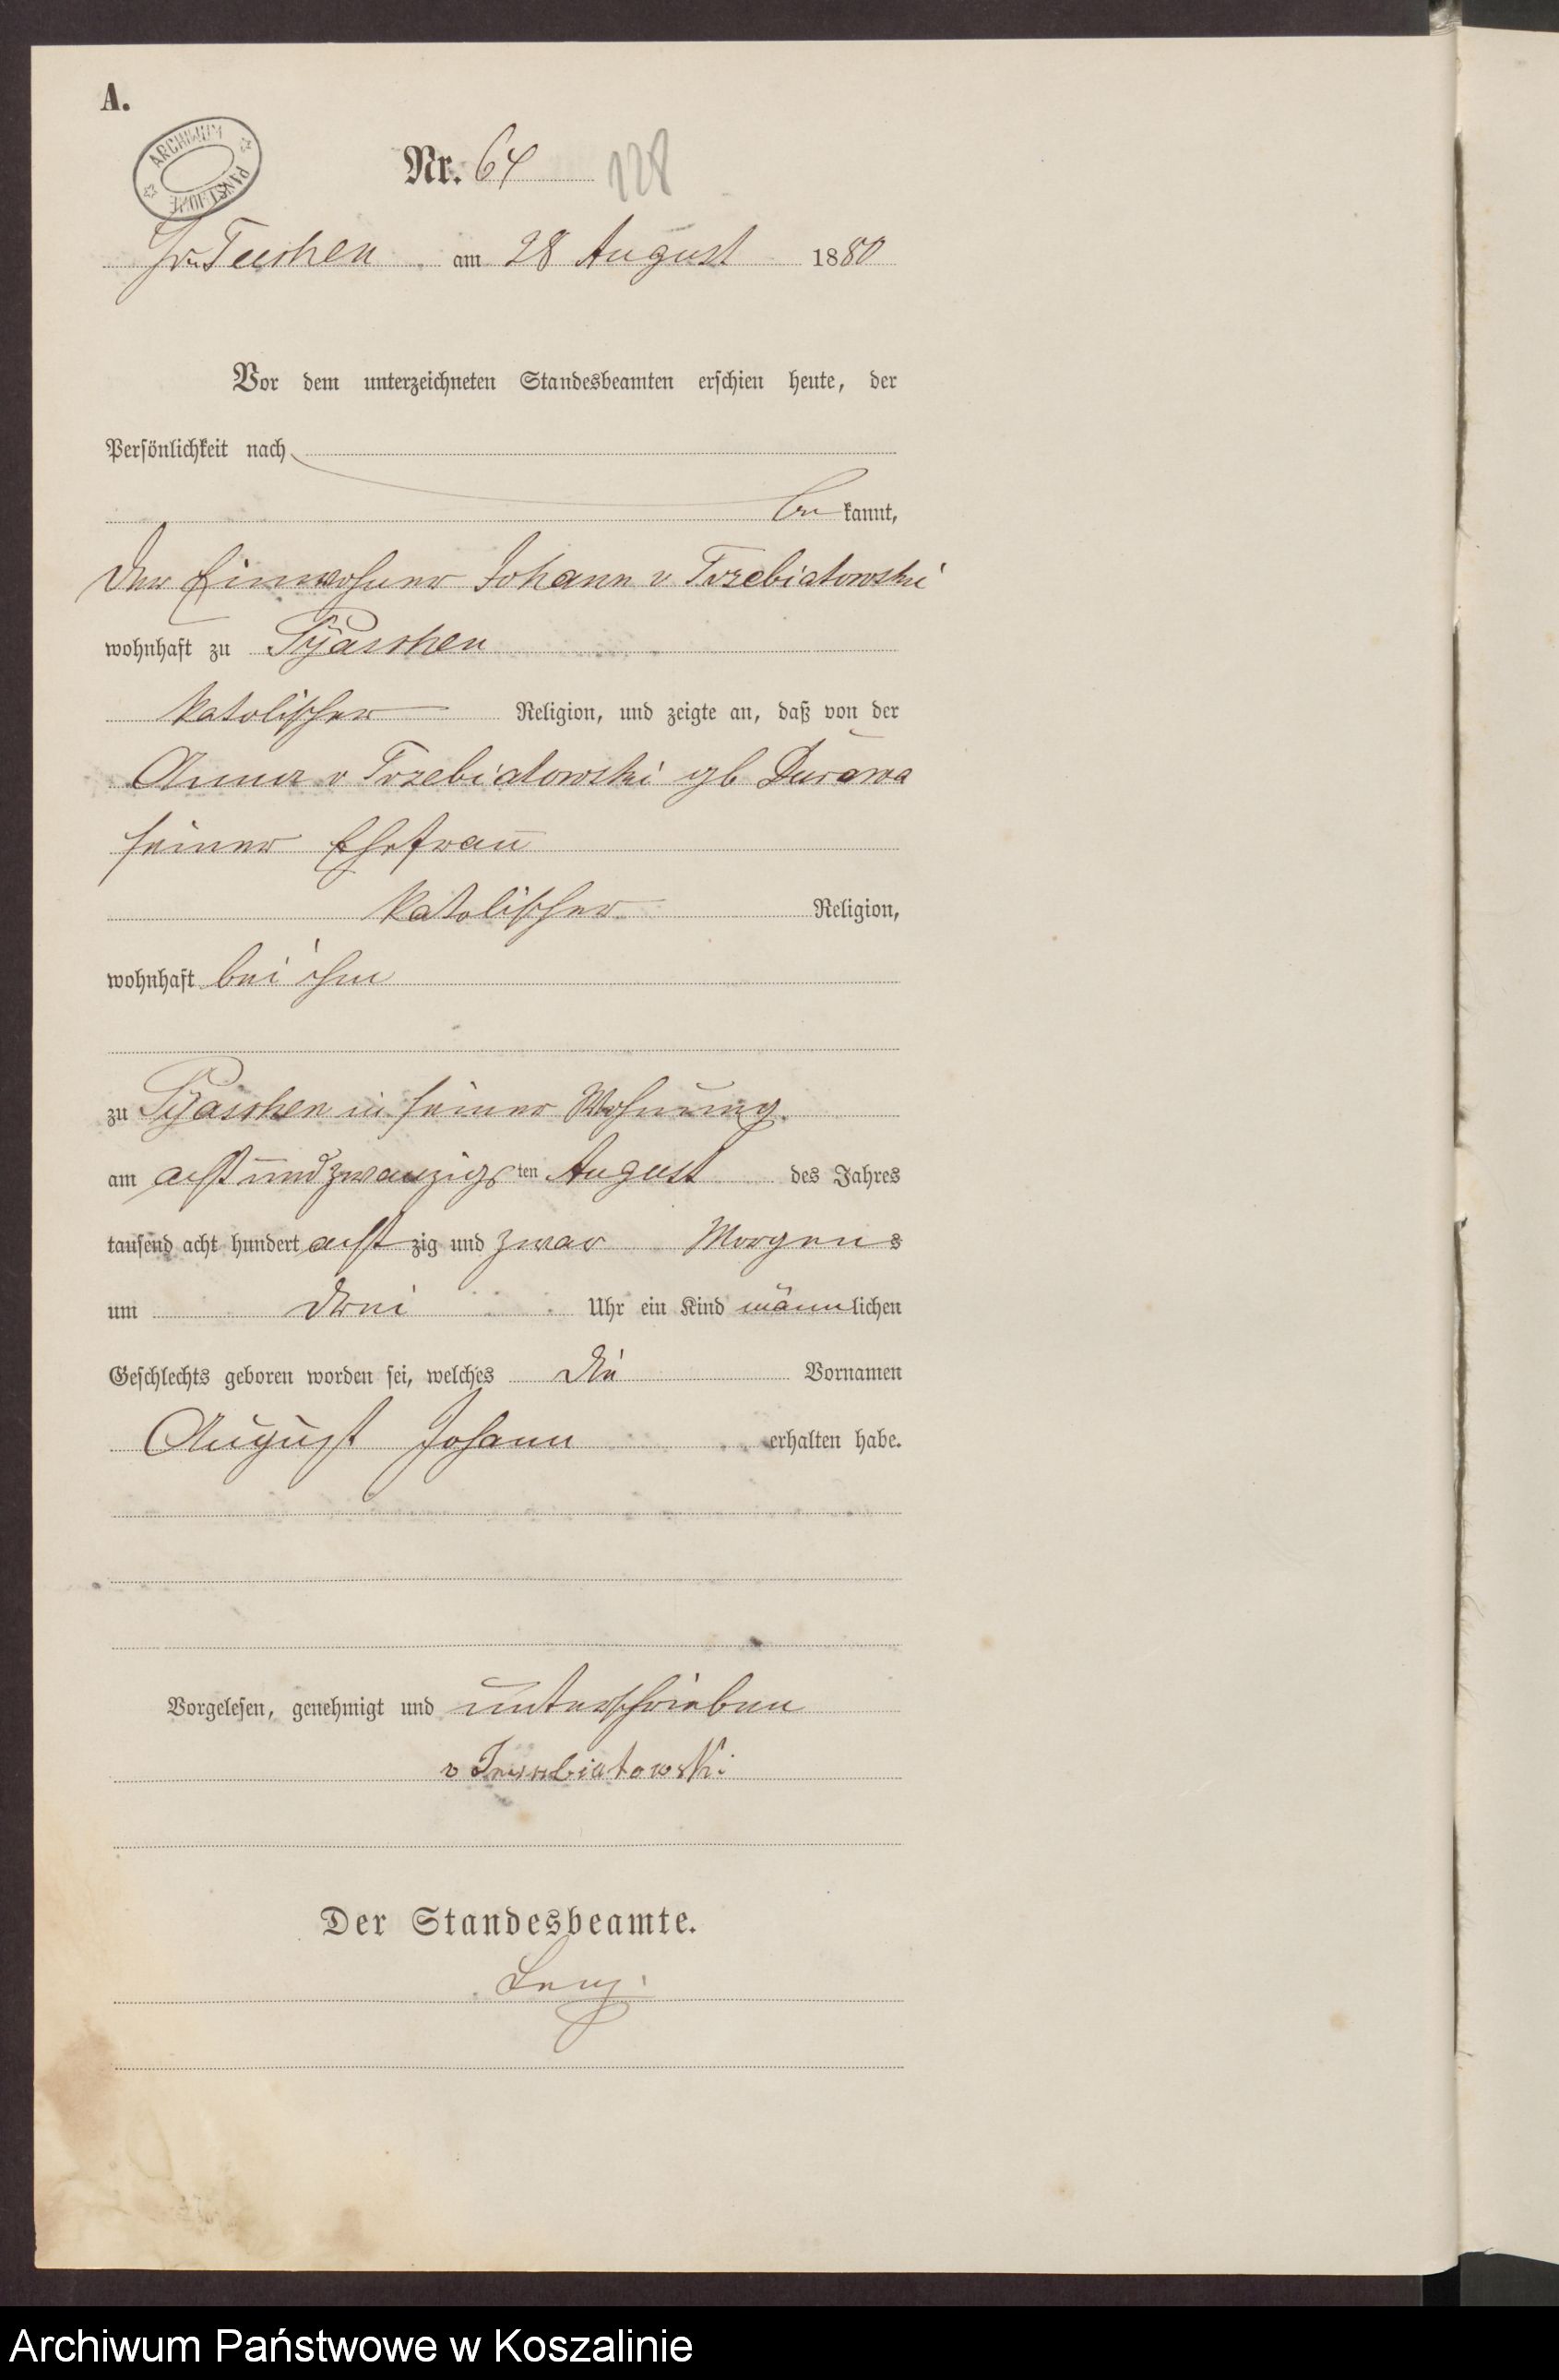 A.
ARCHIWUM PAŃSTWOWE
Nr. 64 128
Gr. Tuchen am 28 August 1880
Vor dem unterzeichneten Standesbeamten erschien heute, der
Persönlichkeit nach
be kannt,
der Einwohner Johann v Trzebiatowski
wohnhaft zu Pyaschen
katolischer Religion, und zeigte an, daß von der
Anna v Trzebiatowski gb Durawa
seiner Ehefrau
katolischer Religion,
wohnhaft bei ihm
zu Pyaschen in seiner Wohnung
am acht und zwanzigsten August des Jahres
tausend acht hundert acht zig und zwar Morgens
um drei Uhr ein Kind männlichen
Geschlechts geboren worden sei, welches die Vornamen
August Johann erhalten habe.
Vorgelesen, genehmigt und unterschrieben
v Trzebiatowski
Der Standesbeamte.
Archiwum Państwowe w Koszalinie